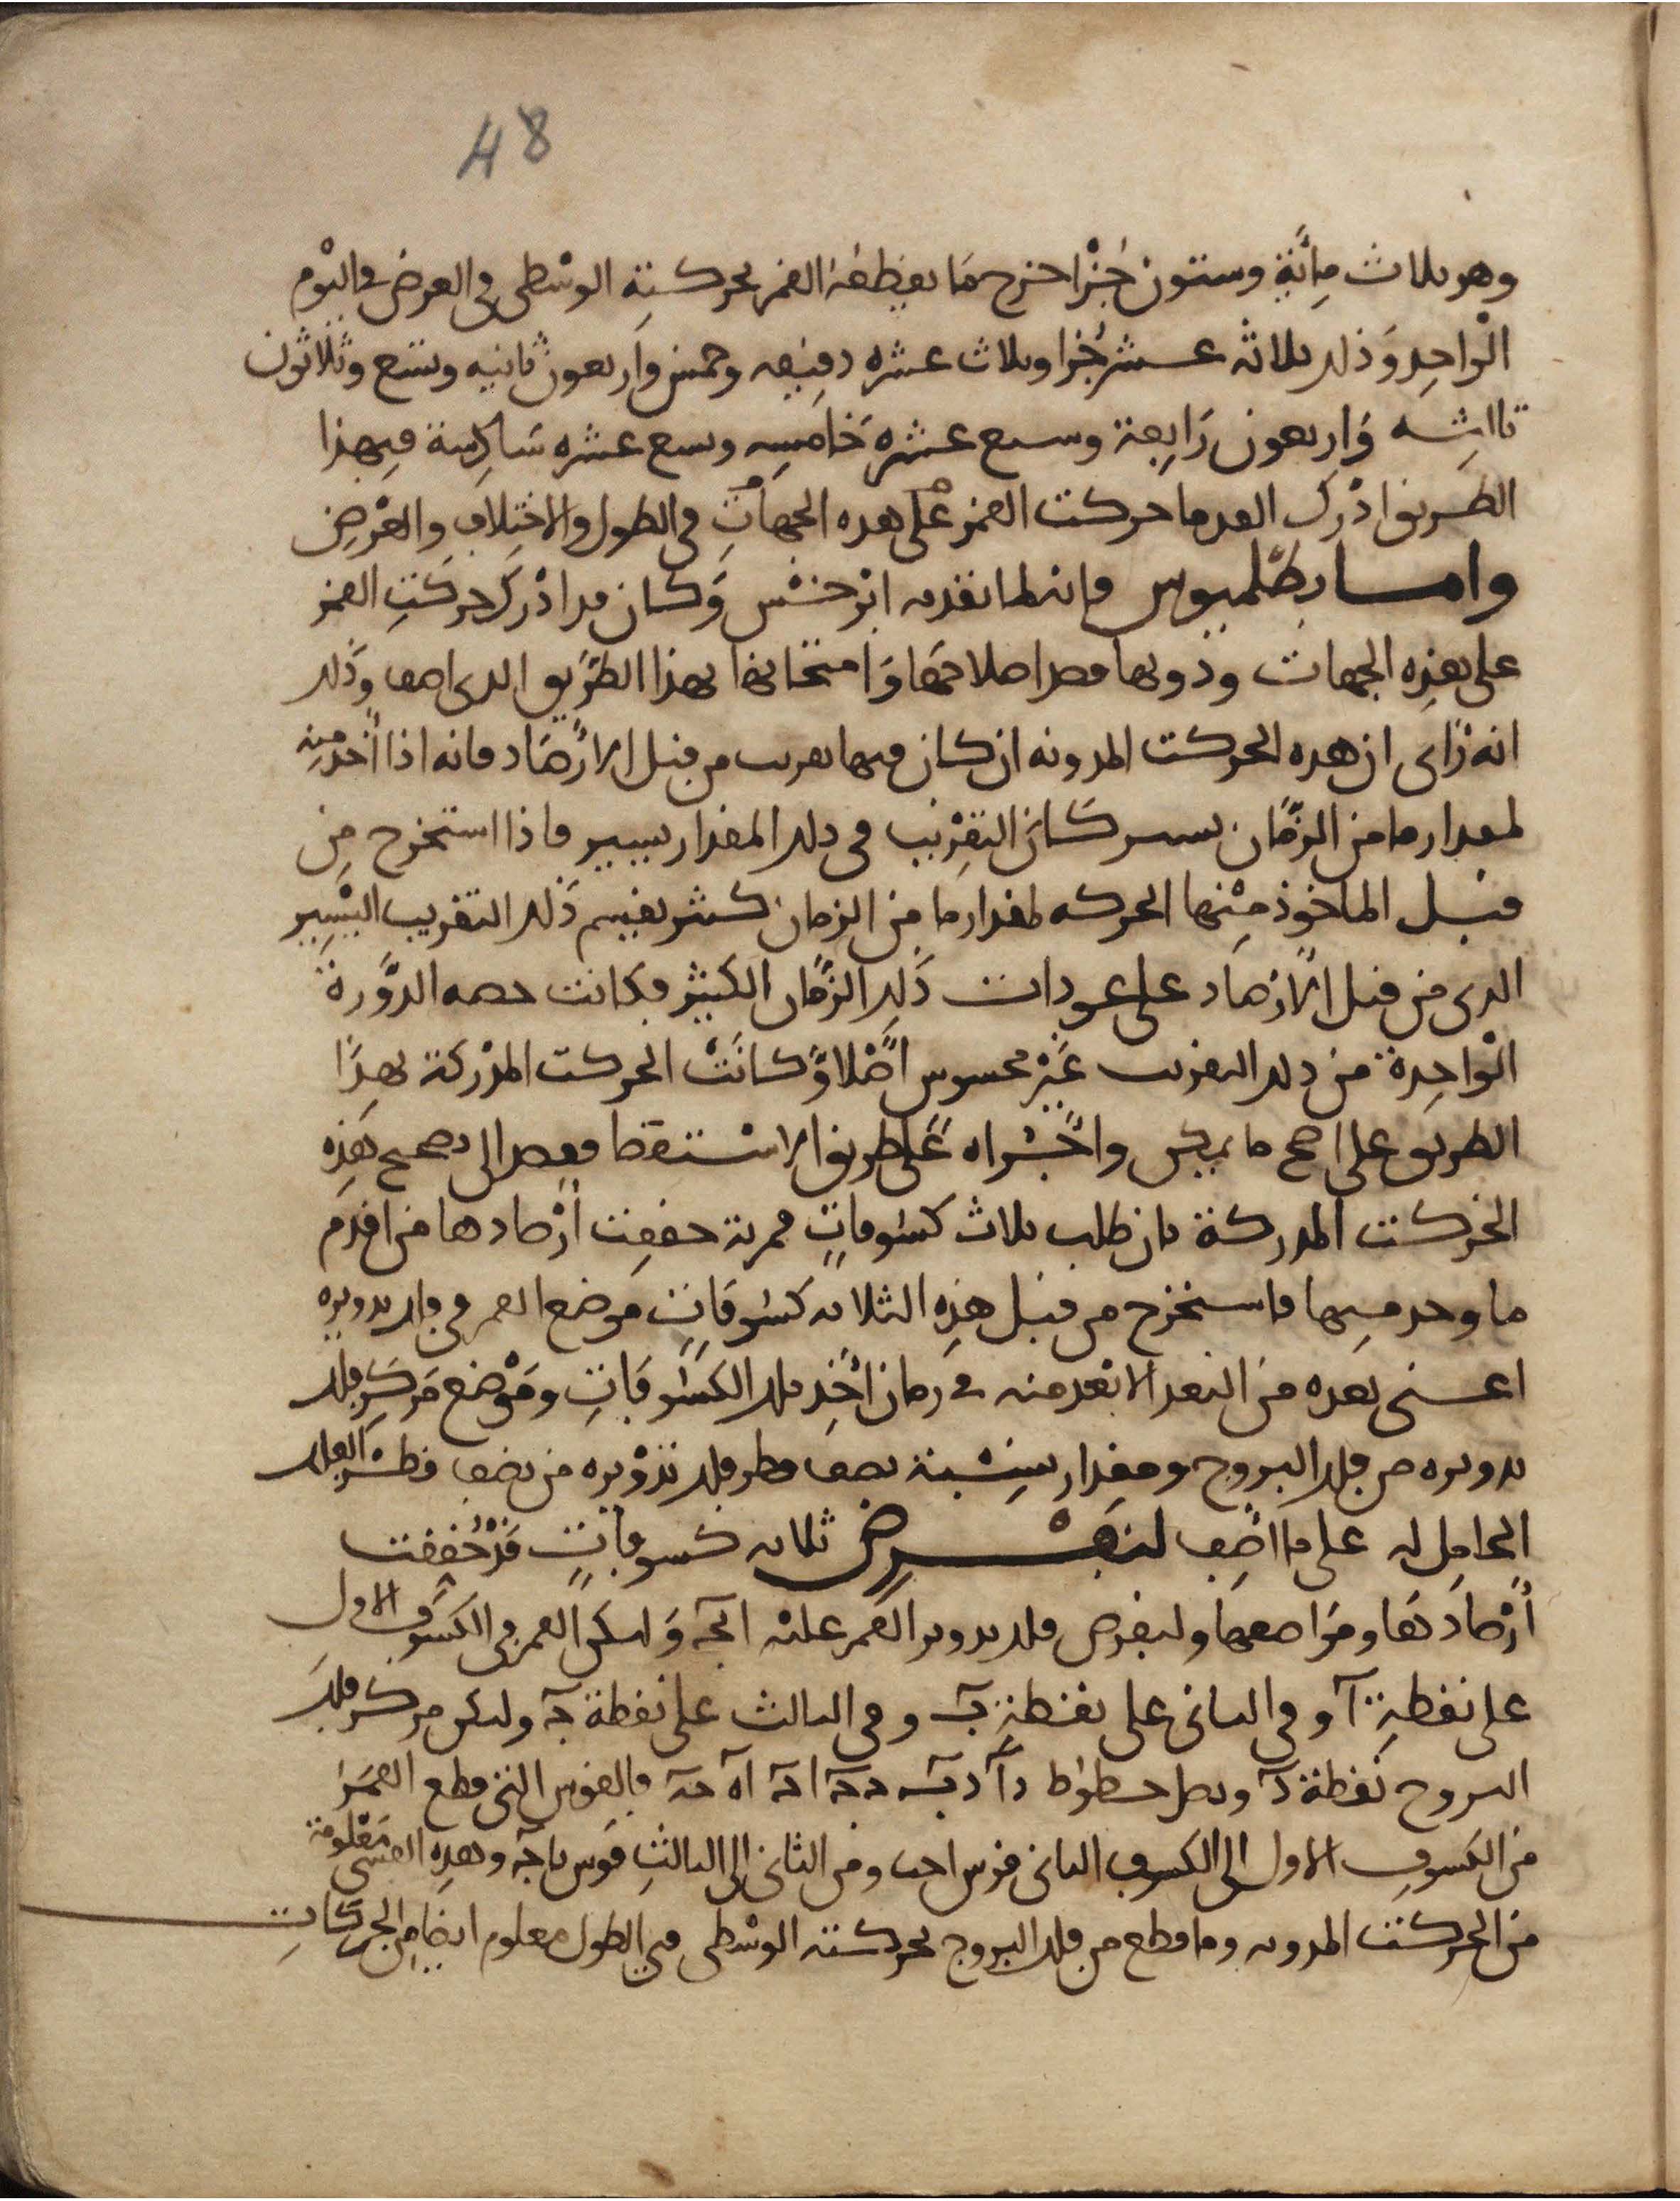 48
وهو ثلاث مائة وستون جزءا خرج ما يقطعه القمر بحركته الوسطى في العرض في اليوم
الواحد وذلك ثلاثة عشر جزءا وثلاث عشره دقيقه وخمس واربعون ثانيه وتسع وثلاثون
ثالثه واربعون رابعة وسبع عشره خامسه وسبع عشره سادسة فبهذا
الطريق ادرك القدما حركت القمر على هذه الجهات في الطول والاختلاف والعرض
واما بطلميوس فانه لما تقدمه ابرخس وكان قد ادرك حركت القمر
على هذه الجهات ودونها قصد اصلاحها وامتحانها بهذا الطريق الذي اصف وذلك
انه راى ان هذه الحركت المدونه ان كان فيها تقريب من قبل الارصاد فانه اذا اخذ منه
لمقدار ما من الزمان يسير كان التقريب في ذلك المقدار يسير فاذا استخرج من
قبل الماخوذ منها الحركه لمقدار ما من الزمان كثير يقسم ذلك التقريب اليسير
الذي من قبل الارصاد على عودات ذلك الزمان الكثير فكانت حصه الدورة
الواحدة من ذلك التقريب غير محسوس اصلا وكانت الحركت المدركة بهذا
الطريق على اصح ما يمكن واجراه على طريق الاستقصا فقصد الى تصحيح هذه
الحركت المدركة بان طلب ثلاث كسوفات قمرية حققت ارصادها من اقدم
ما وجد منها فاستخرج من قبل هذه الثلاثه كسوفات موضع القمر في فلك تدويره
اعنى بعده من البعد الابعد منه في زمان اخذ تلك الكسوفات وموضع مركز فلك
تدويره من فلك البروج ومقدار نسبة نصف قطر فلك تدويره من نصف قطر الفلك
الحامل له على ما اصف لنفرض ثلاثه كسوفات قد حققت
ارصادها ومواضعها ولنفرض فلك تدوير القمر عليه ابج وليكن القمر في الكسوف الاول
على نقطة آ وفي الثاني على نقطة ب وفي الثالث على نقطة ج وليكن مركز فلك
البروج نقطة د ونصل خطوط دآ دب دج اد اه جه فالقوس التي قطع القمر
من الكسوف الاول الى الكسوف الثاني قوس اجب ومن الثاني الى الثالث قوس باج وهذه القسي معلومة
من الحركت المدونه وما قطع من فلك البروج بحركته الوسطى في الطول معلوم ايضا من الحركات